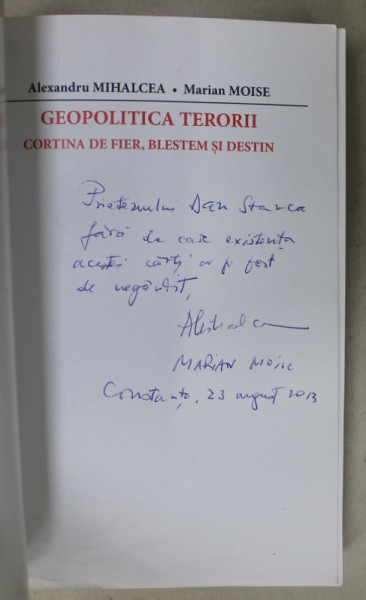 Alexandru MIHALCEA • Marian MOISE
GEOPOLITICA TERORII
CORTINA DE FIER, BLESTEM ȘI DESTIN
Prietenului Dan Stanca
fără de care existența
acestei cărți ar fi fost
de negândit,
AMihalcea
MARIAN MOISE
Constanța, 23 august 2013